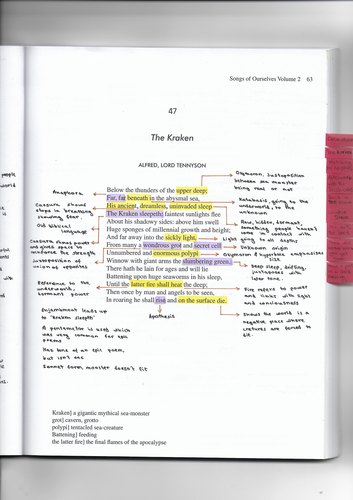 Songs of Ourselves Volume 2 63
47
The Kraken
ALFRED, LORD TENNYSON
Below the thunders of the upper deep;
Far, far beneath in the abysmal sea,
His ancient, dreamless, uninvaded sleep
The Kraken sleepeth: faintest sunlights flee
About his shadowy sides: above him swell
Huge sponges of millennial growth and height;
And far away into the sickly light,
From many a wondrous grot and secret cell
Unnumbered and enormous polypi
Winnow with giant arms the slumbering green.
There hath he lain for ages and will lie
Battening upon huge seaworms in his sleep,
Until the latter fire shall heat the deep;
Then once by man and angels to be seen,
In roaring he shall rise and on the surface die.
people
world
Anaphora
Caesura shows
stops in breathing
showing fear.
Old biblical
language
Caesura shows pause
and gives space to
reinforce the strength
juxtaposition of
union of opposites
Reference to the
underworld,
dormant power
Enjambment leads up
to "Kraken sleepeth"
A pentameter is used which
was very common for epic
poems
Has tone of an epic poem,
but isn't one.
Sonnet form, monster doesn't fit
Oxymoron, juxtaposition
between sea monster
being real or not
Katabasis, going to the
underworld, to the
unknown
Raw, hidden, dormant,
something people haven't
come in contact with
Light going to all depths
Unknown origin
Oxymoron & hyperbole emphasises
size
Deep sleep, drifting,
juxtaposes with
later tone.
Fire refers to power
and links with light
and consciousness
Shows the world is a
negative place where
creatures are forced to
die.
Apotheosis
Kraken] a gigantic mythical sea-monster
grot] cavern, grotto
polypi] tentacled sea-creature
Battening] feeding
the latter fire] the final flames of the apocalypse